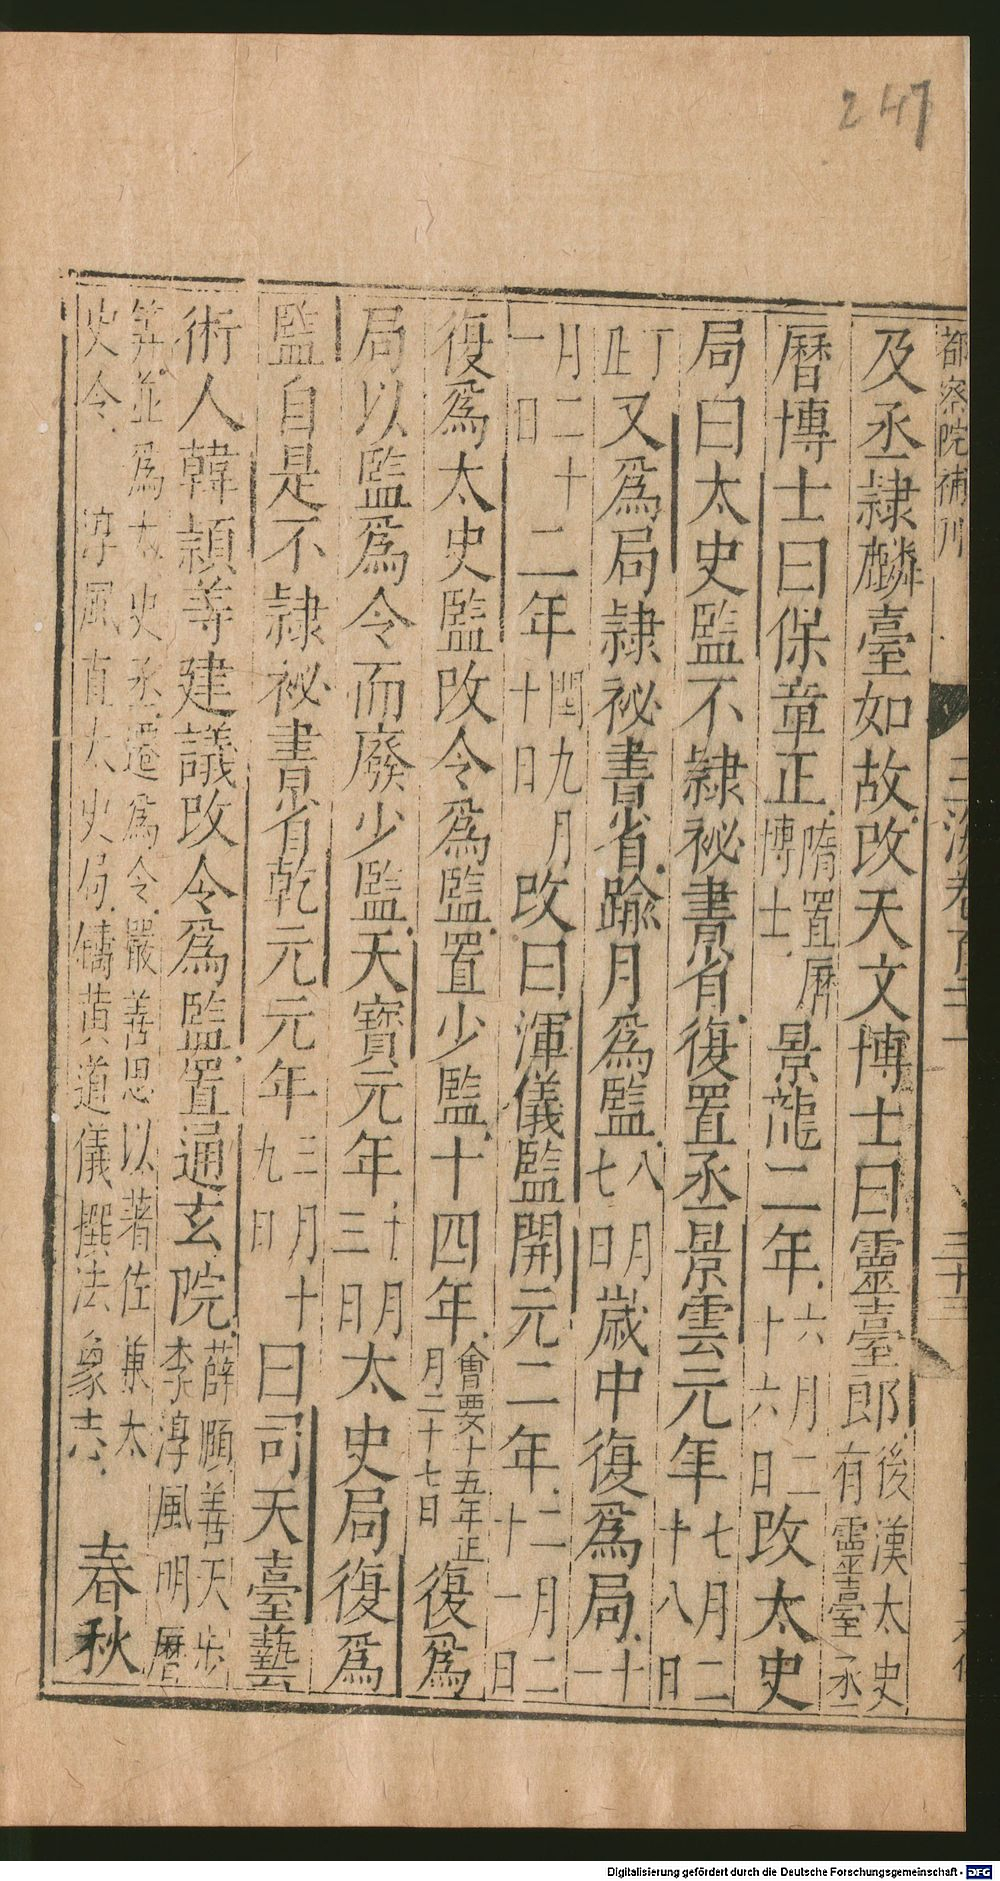 247
都察院補刊
玉海卷百二十一
三十三
及丞隷麟臺如故改天文博士曰靈臺郎後漢太史有靈臺丞
曆博士曰保章正隋置曆博士景龍二年六月二十六日改太史
局曰太史監不隷祕書省復置丞景雲元年七月二十八日
丁止又爲局隷祕書省踰月爲監八月七日歲中復爲局十一
月二十一日二年閏九月十日改曰渾儀監開元二年二月二十一日
復爲太史監改令爲監置少監十四年會要十五年正月二十七日復爲
局以監爲令而廢少監天寶元年十月三日太史局復爲
監自是不隷祕書省乾元元年三月十九日曰司天臺藝
術人韓頴等建議改令爲監置通玄院薛頤善天步李淳風明曆
筭並爲太史丞遷爲令嚴善思以著佐兼太史令 淳風直太史局鑄黄道儀撰法象志 春秋
Digitalisierung gefördert durch die Deutsche Forschungsgemeinschaft - DFG